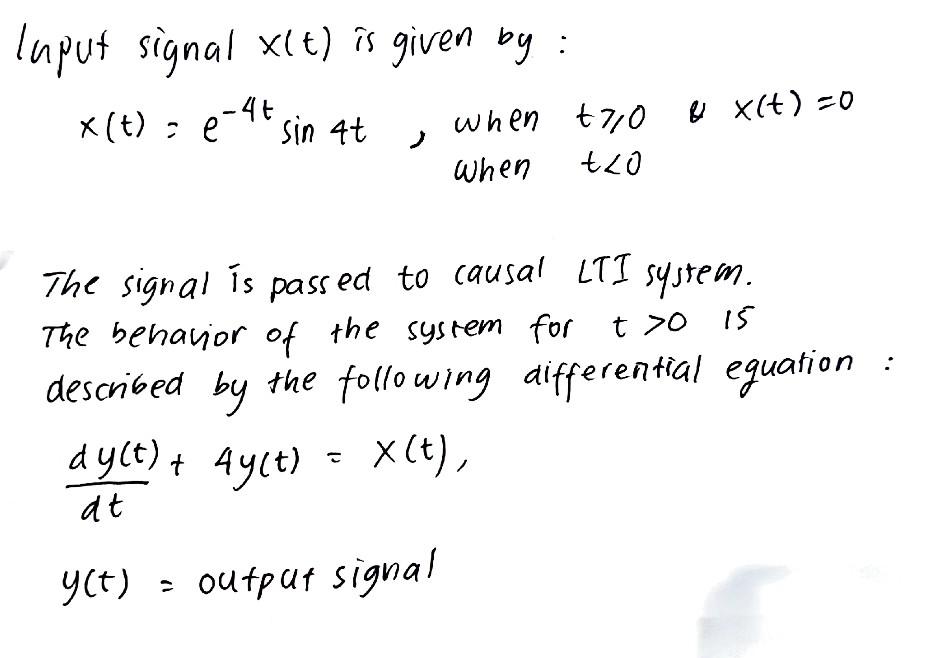 Input signal x(t) is given by :
x(t) = e^-4t sin 4t , when t ≥ 0 & x(t) = 0
when t < 0
The signal is passed to causal LTI system.
The behavior of the system for t > 0 is
described by the following differential equation :
dy(t)/dt + 4y(t) = x(t),
y(t) = output signal